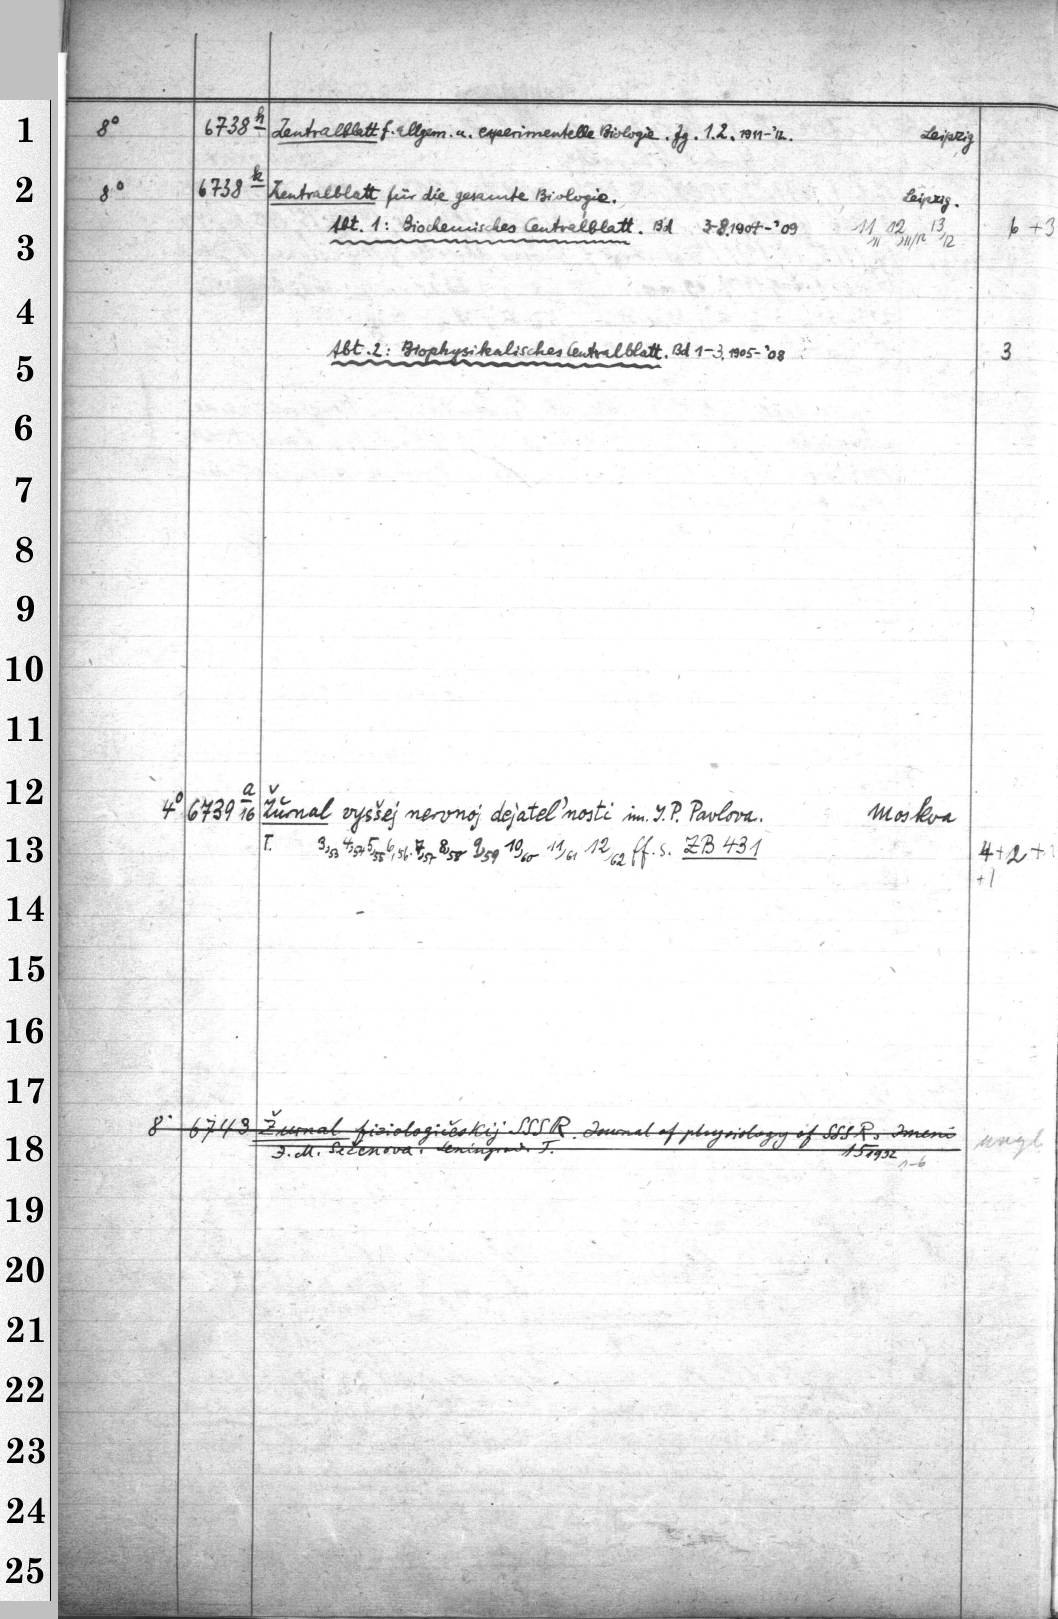 1
8° 6738 h Zentralblatt f. allgem. u. experimentelle Biologie. Jg. 1.2. 1911-'12. Leipzig
2
8° 6738 k Zentralblatt für die gesamte Biologie. Leipzig.
Abt. 1: Biochemisches Centralblatt. Bd 3-8. 1904-'09 11 12 13 6 + 3
3
4
Abt. 2: Biophysikalisches Centralblatt. Bd 1-3. 1905-'08 3
5
6
7
8
9
10
11
12
4° 6739 a/16 Žurnal vysšej nervnoj dejatel'nosti im. I.P. Pavlova. Moskva
13
T. 3,53 4,54 5,55 6,56. 7,57 8,58 9,59 10,60 11,61 12,62 ff. s. ZB 431 4+2+
+1
14
15
16
17
8° 6743 Žurnal fiziologičeskij SSSR. Journal of physiology of SSSR. Imeni
18
I. M. Sečenova. Leningrad. T. 15 1932
1-6
19
20
21
22
23
24
25